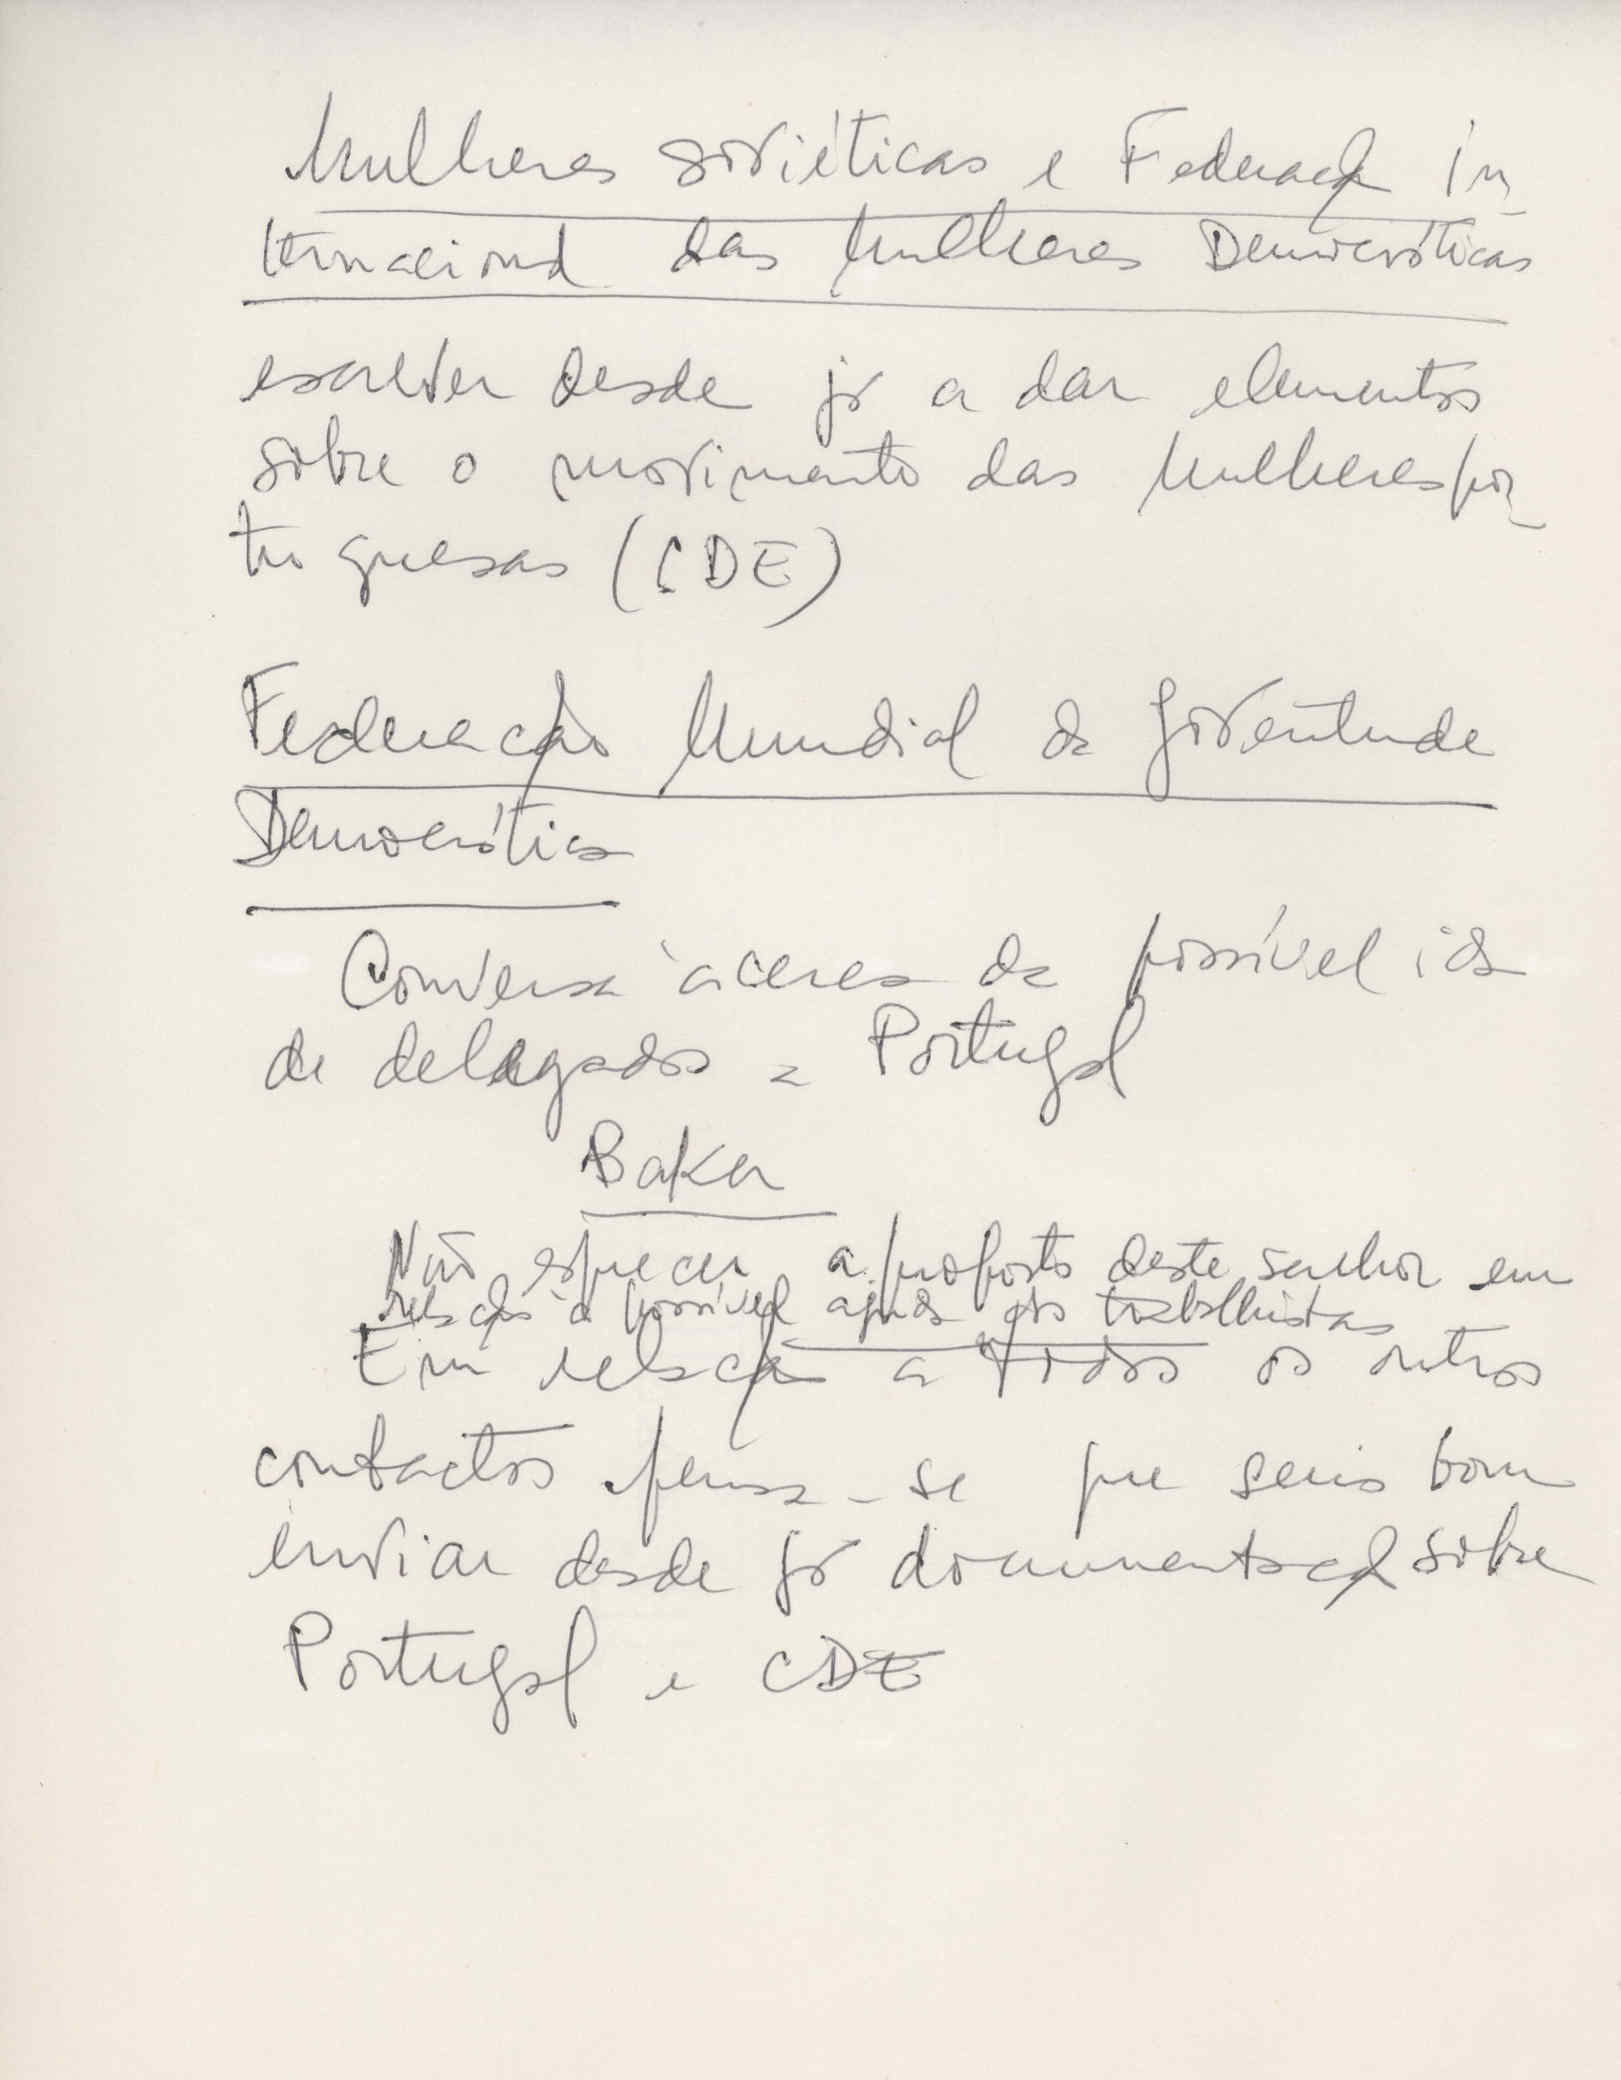 Mulheres soviéticas e Federação In-
ternacional das Mulheres Democráticas
escrever desde já a dar elementos
sobre o movimento das Mulheres por-
tuguesas (CDE)
Federação Mundial da Joventude
Democrática
Conversa àcerca da possível ida
de delegados a Portugal
Baker
Não esquecer a proposta deste senhor em
relação à possível ajuda dos trabalhistas
Em relação a todos os outros
contactos pensa-se que seria bom
enviar desde já documentação sobre
Portugal e CDE